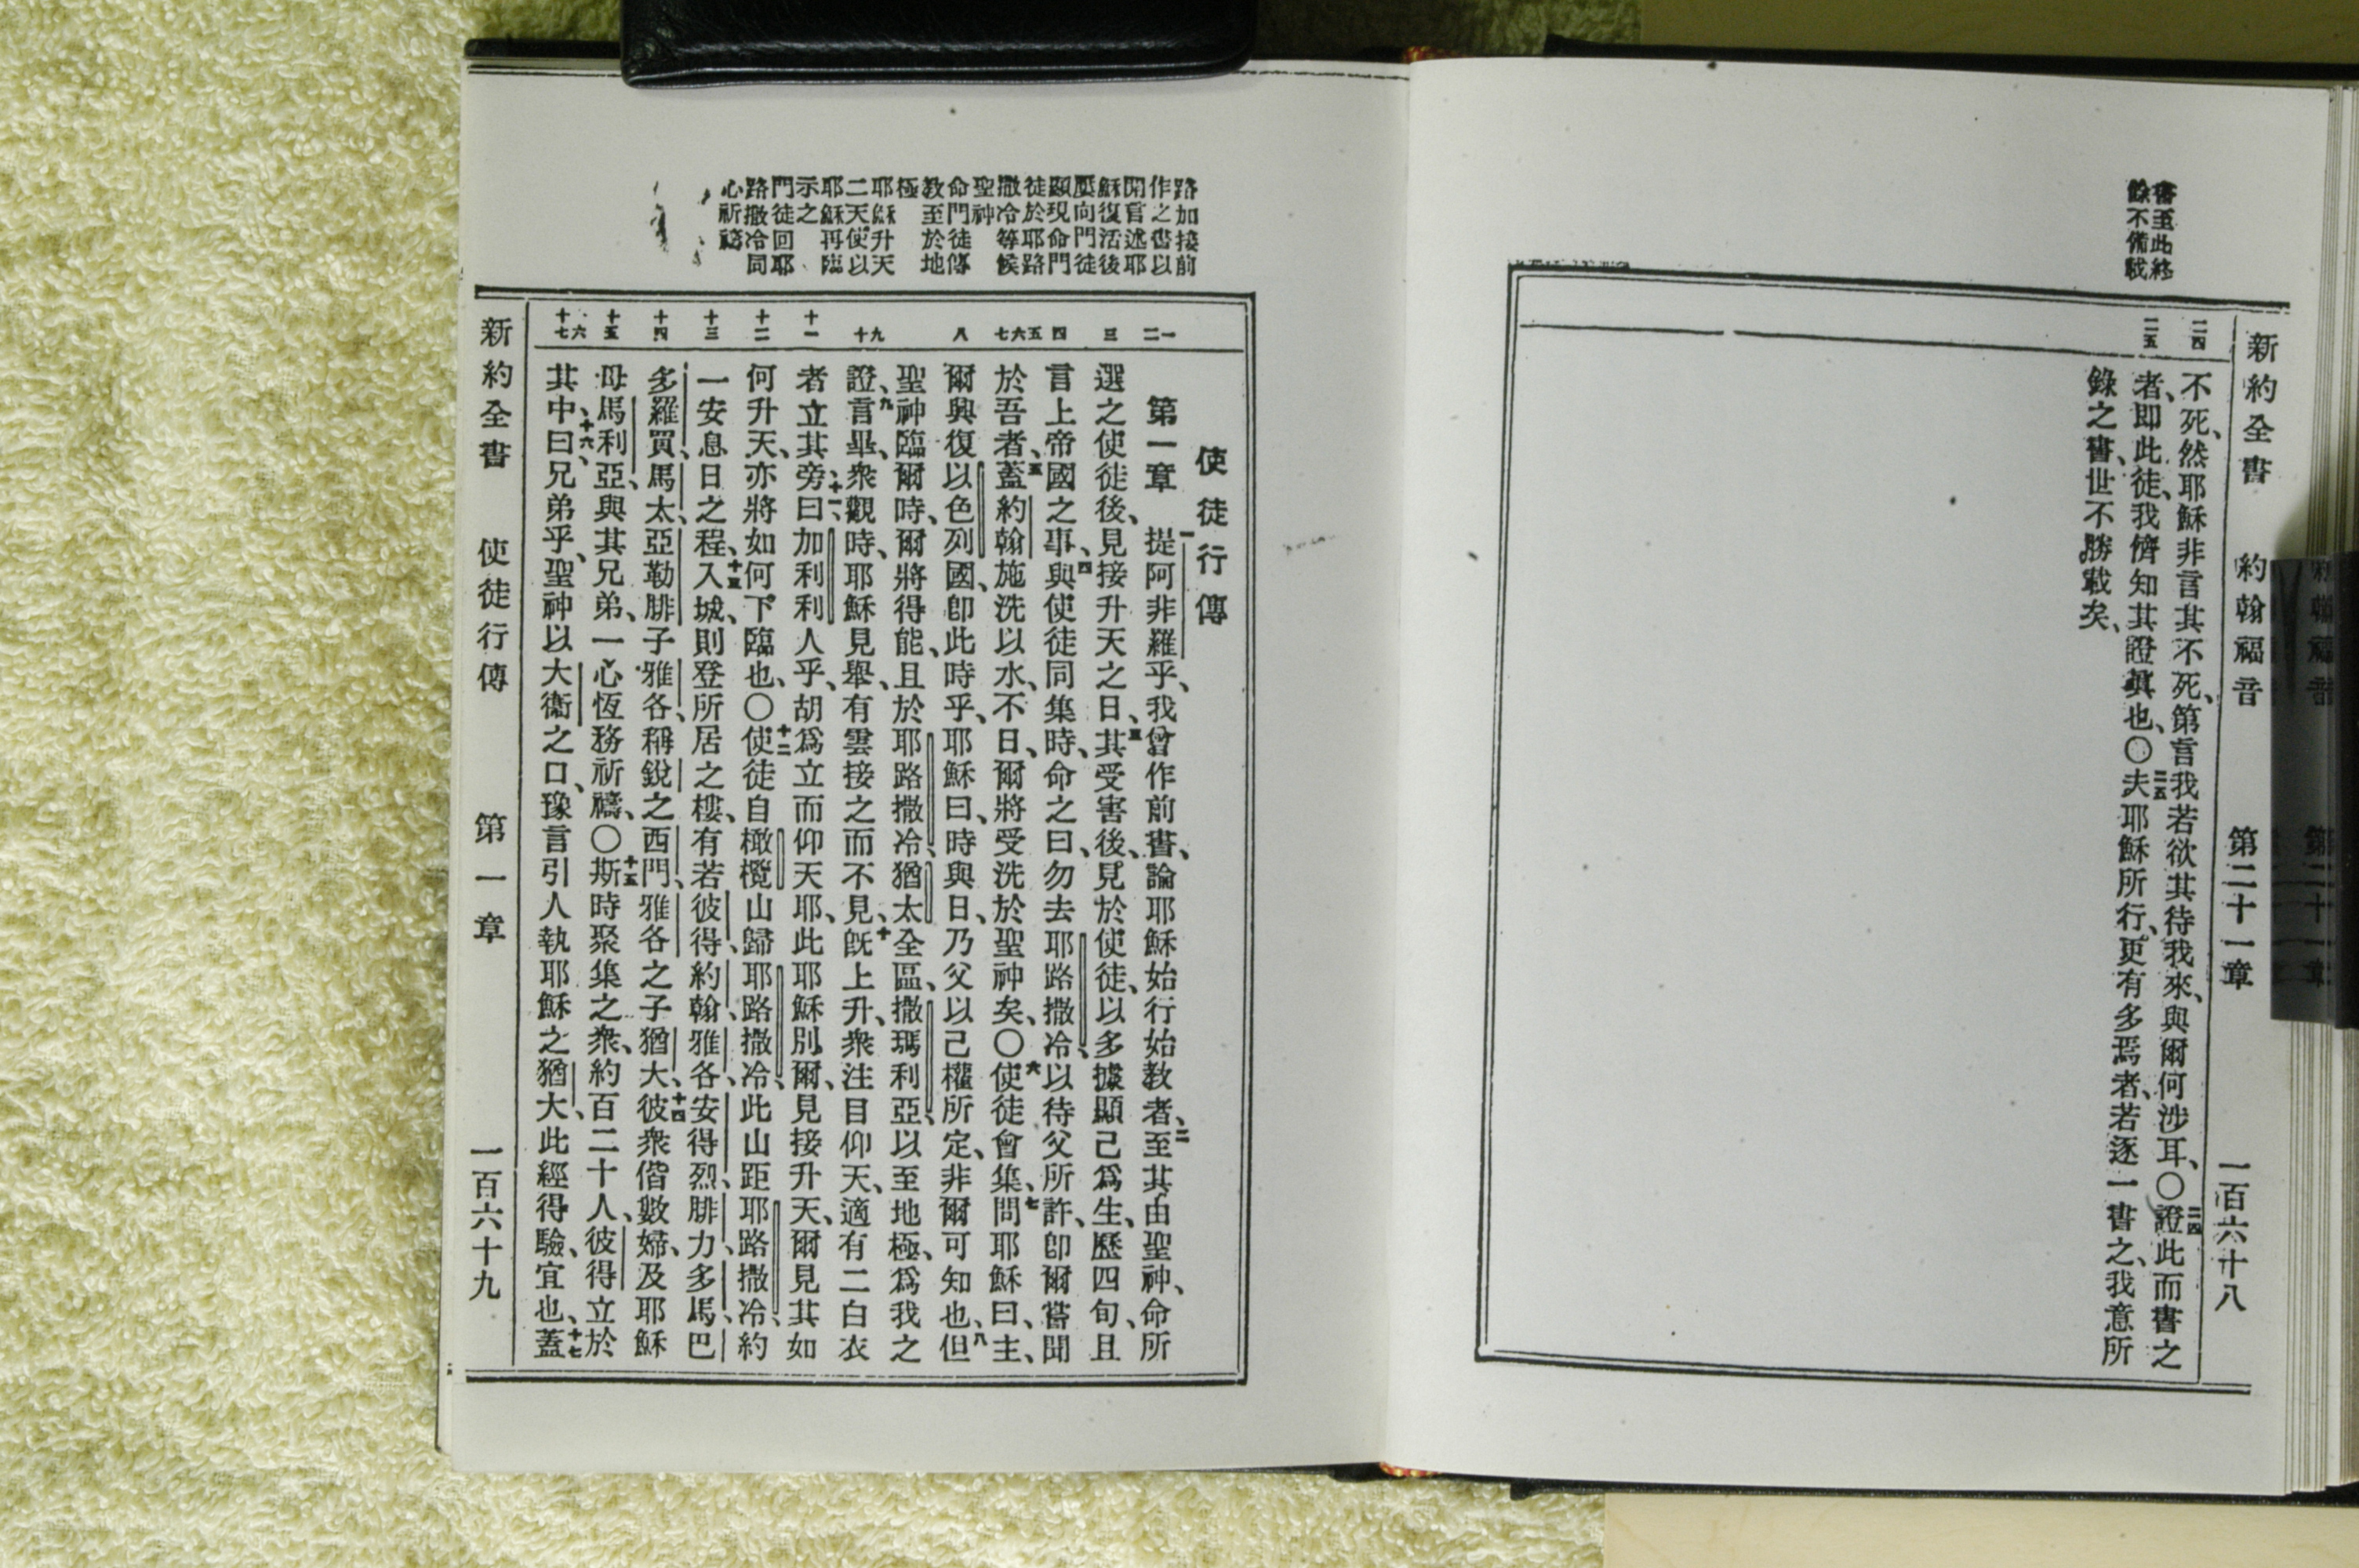 書至此終
餘不備載
新約全書 約翰福音 第二十一章 一百六十八
二四
二五
不死、然耶穌非言其不死、第言我若欲其待我來、與爾何涉耳、〇二四證此而書之
者、即此徒、我儕知其證眞也、〇二五夫耶穌所行、更有多焉者、若逐一書之、我意所
錄之書、世不勝載矣、
路加接前
作之書以
開言述耶
穌復活後
屢向門徒
顯現命門
徒於耶路
撒冷等候
聖神
命門徒傳
教至於地
極
耶穌升天
二天使以
耶穌再臨
示之
門徒回耶
路撒冷同
心祈禱
一二
三
四
五六七
八
九十
十一
十二
十三
十四
十五
十六
十七
使徒行傳
第一章 一提阿非羅乎、我曾作前書、論耶穌始行始教者、二至其由聖神、命所
選之使徒後、見接升天之日、三其受害後、見於使徒、以多據顯己爲生、歷四旬、且
言上帝國之事、四與使徒同集時、命之曰、勿去耶路撒冷、以待父所許、卽爾嘗聞
於吾者、五蓋約翰施洗以水、不日、爾將受洗於聖神矣、〇六使徒會集、七問耶穌曰、主、
爾興復以色列國、卽此時乎、耶穌曰、時與日、乃父以己權所定、非爾可知也、八但
聖神臨爾時、爾將得能、且於耶路撒冷、猶太全區、撒瑪利亞、以至地極、爲我之
證、九言畢、衆觀時、耶穌見舉、有雲接之而不見、十旣上升、衆注目仰天、適有二白衣
者立其旁、十一曰、加利利人乎、胡爲立而仰天耶、此耶穌別爾、見接升天、爾見其如
何升天、亦將如何下臨也、〇十二使徒自橄欖山歸耶路撒冷、此山距耶路撒冷、約
一安息日之程、十三入城、則登所居之樓、有若彼得、約翰、雅各、安得烈、腓力、多馬、巴
多羅買、馬太、亞勒腓子雅各、稱銳之西門、雅各之子猶大、十四彼衆偕數婦、及耶穌
母馬利亞、與其兄弟、一心恆務祈禱、〇十五斯時聚集之衆、約百二十人、彼得立於
其中、十六曰、兄弟乎、聖神以大衞之口、豫言引人執耶穌之猶大、此經得驗、宜也、十七蓋
新約全書 使徒行傳 第一章 一百六十九